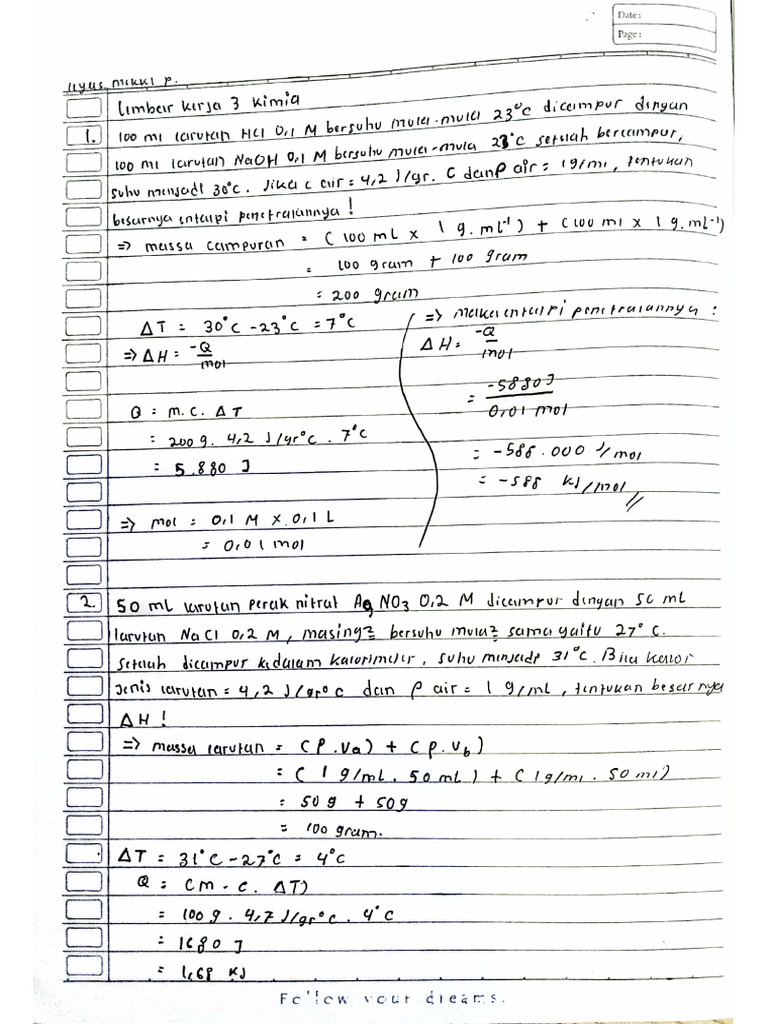 Date :
Page :
Ilyas Mikki P.
Lembar kerja 3 kimia
1. 100 ml larutan HCl 0,1 M bersuhu mula-mula 23°C dicampur dengan
100 ml larutan NaOH 0,1 M bersuhu mula-mula 23°C setelah bercampur,
suhu menjadi 30°C. Jika c air = 4,2 J/gr. C dan ρ air = 1g/ml, tentukan
besarnya entalpi penetralannya !
=> massa campuran = (100 mL x 1 g.mL⁻¹) + (100 ml x 1 g.mL⁻¹)
= 100 gram + 100 gram
= 200 gram
ΔT = 30°C - 23°C = 7°C
=> ΔH = -Q/mol
Q = m. c. ΔT
= 200 g. 4,2 J/gr°C . 7°C
= 5.880 J
=> mol = 0,1 M x 0,1 L
= 0,01 mol
=> maka entalpi penetralannya :
ΔH = -Q/mol
= -5880 J/0,01 mol
= -588.000 J/mol
= -588 KJ/mol //
2. 50 mL larutan perak nitrat AgNO₃ 0,2 M dicampur dengan 50 mL
larutan NaCl 0,2 M, masing2 bersuhu mula2 sama yaitu 27° C.
Setelah dicampur kedalam kalorimeter, suhu menjadi 31°C. Bila kalor
jenis larutan = 4,2 J/gr°C dan ρ air = 1 g/mL, tentukan besarnya
ΔH !
=> massa larutan = (ρ.Va) + (ρ.Vb)
= (1 g/mL . 50 mL) + (1g/ml . 50 ml)
= 50 g + 50g
= 100 gram.
ΔT = 31°C - 27°C = 4°C
Q = (m . c. ΔT)
= 100 g . 4,2 J/gr°C . 4°C
= 1680 J
= 1,68 KJ
Follow your dreams.